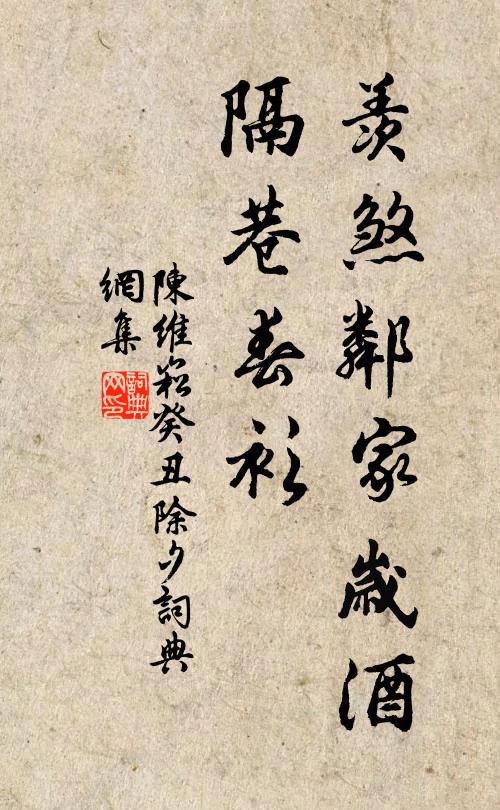 羨煞鄰家歲酒
隔巷春衫
陳維崧癸丑除夕詞典
網集
詞典網印